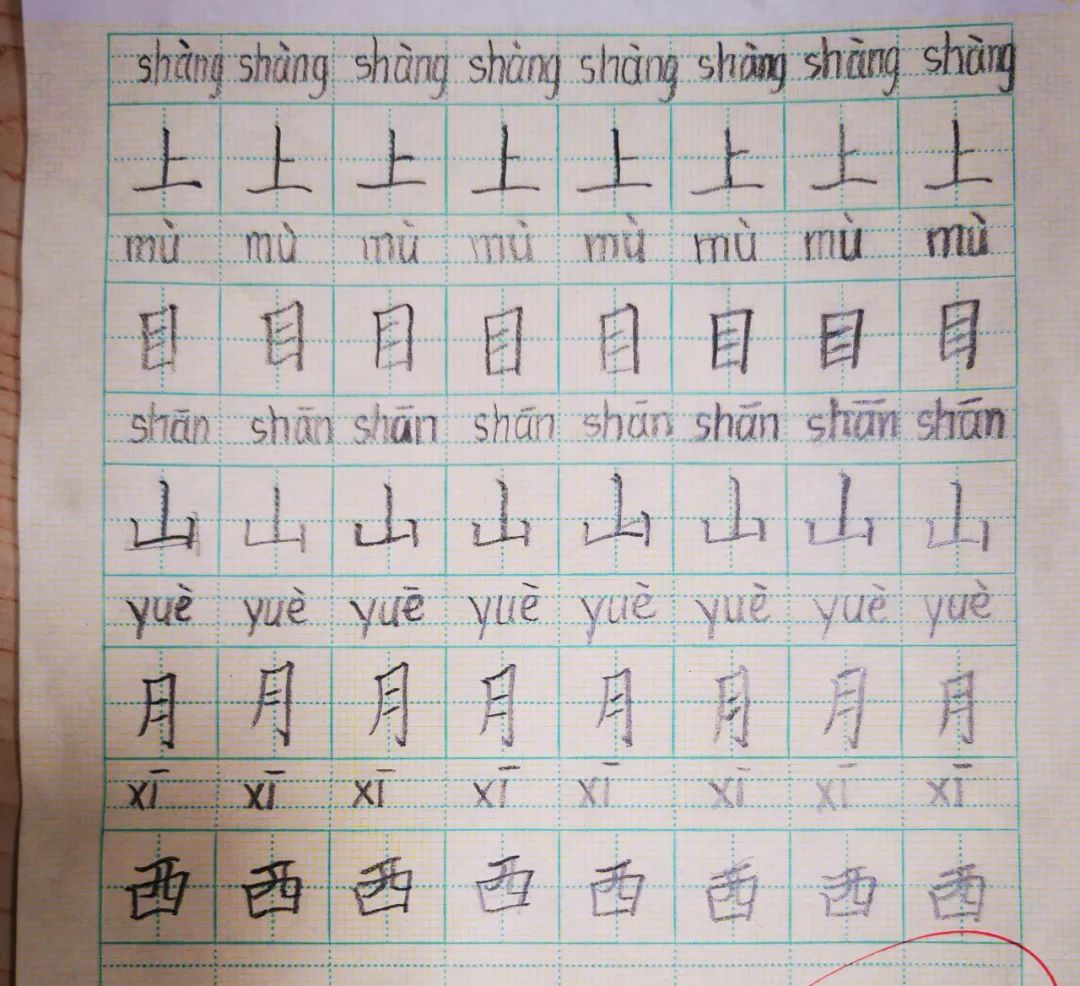 shàng shàng shàng shàng shàng shàng shàng shàng
上 上 上 上 上 上 上 上
mù mù mù mù mù mù mù mù
目 目 目 目 目 目 目 目
shān shān shān shān shān shān shān shān
山 山 山 山 山 山 山 山
yuè yuè yuē yuè yuè yuè yuè yuè
月 月 月 月 月 月 月 月
xī xī xī xī xī xī xī xī
西 西 西 西 西 西 西 西